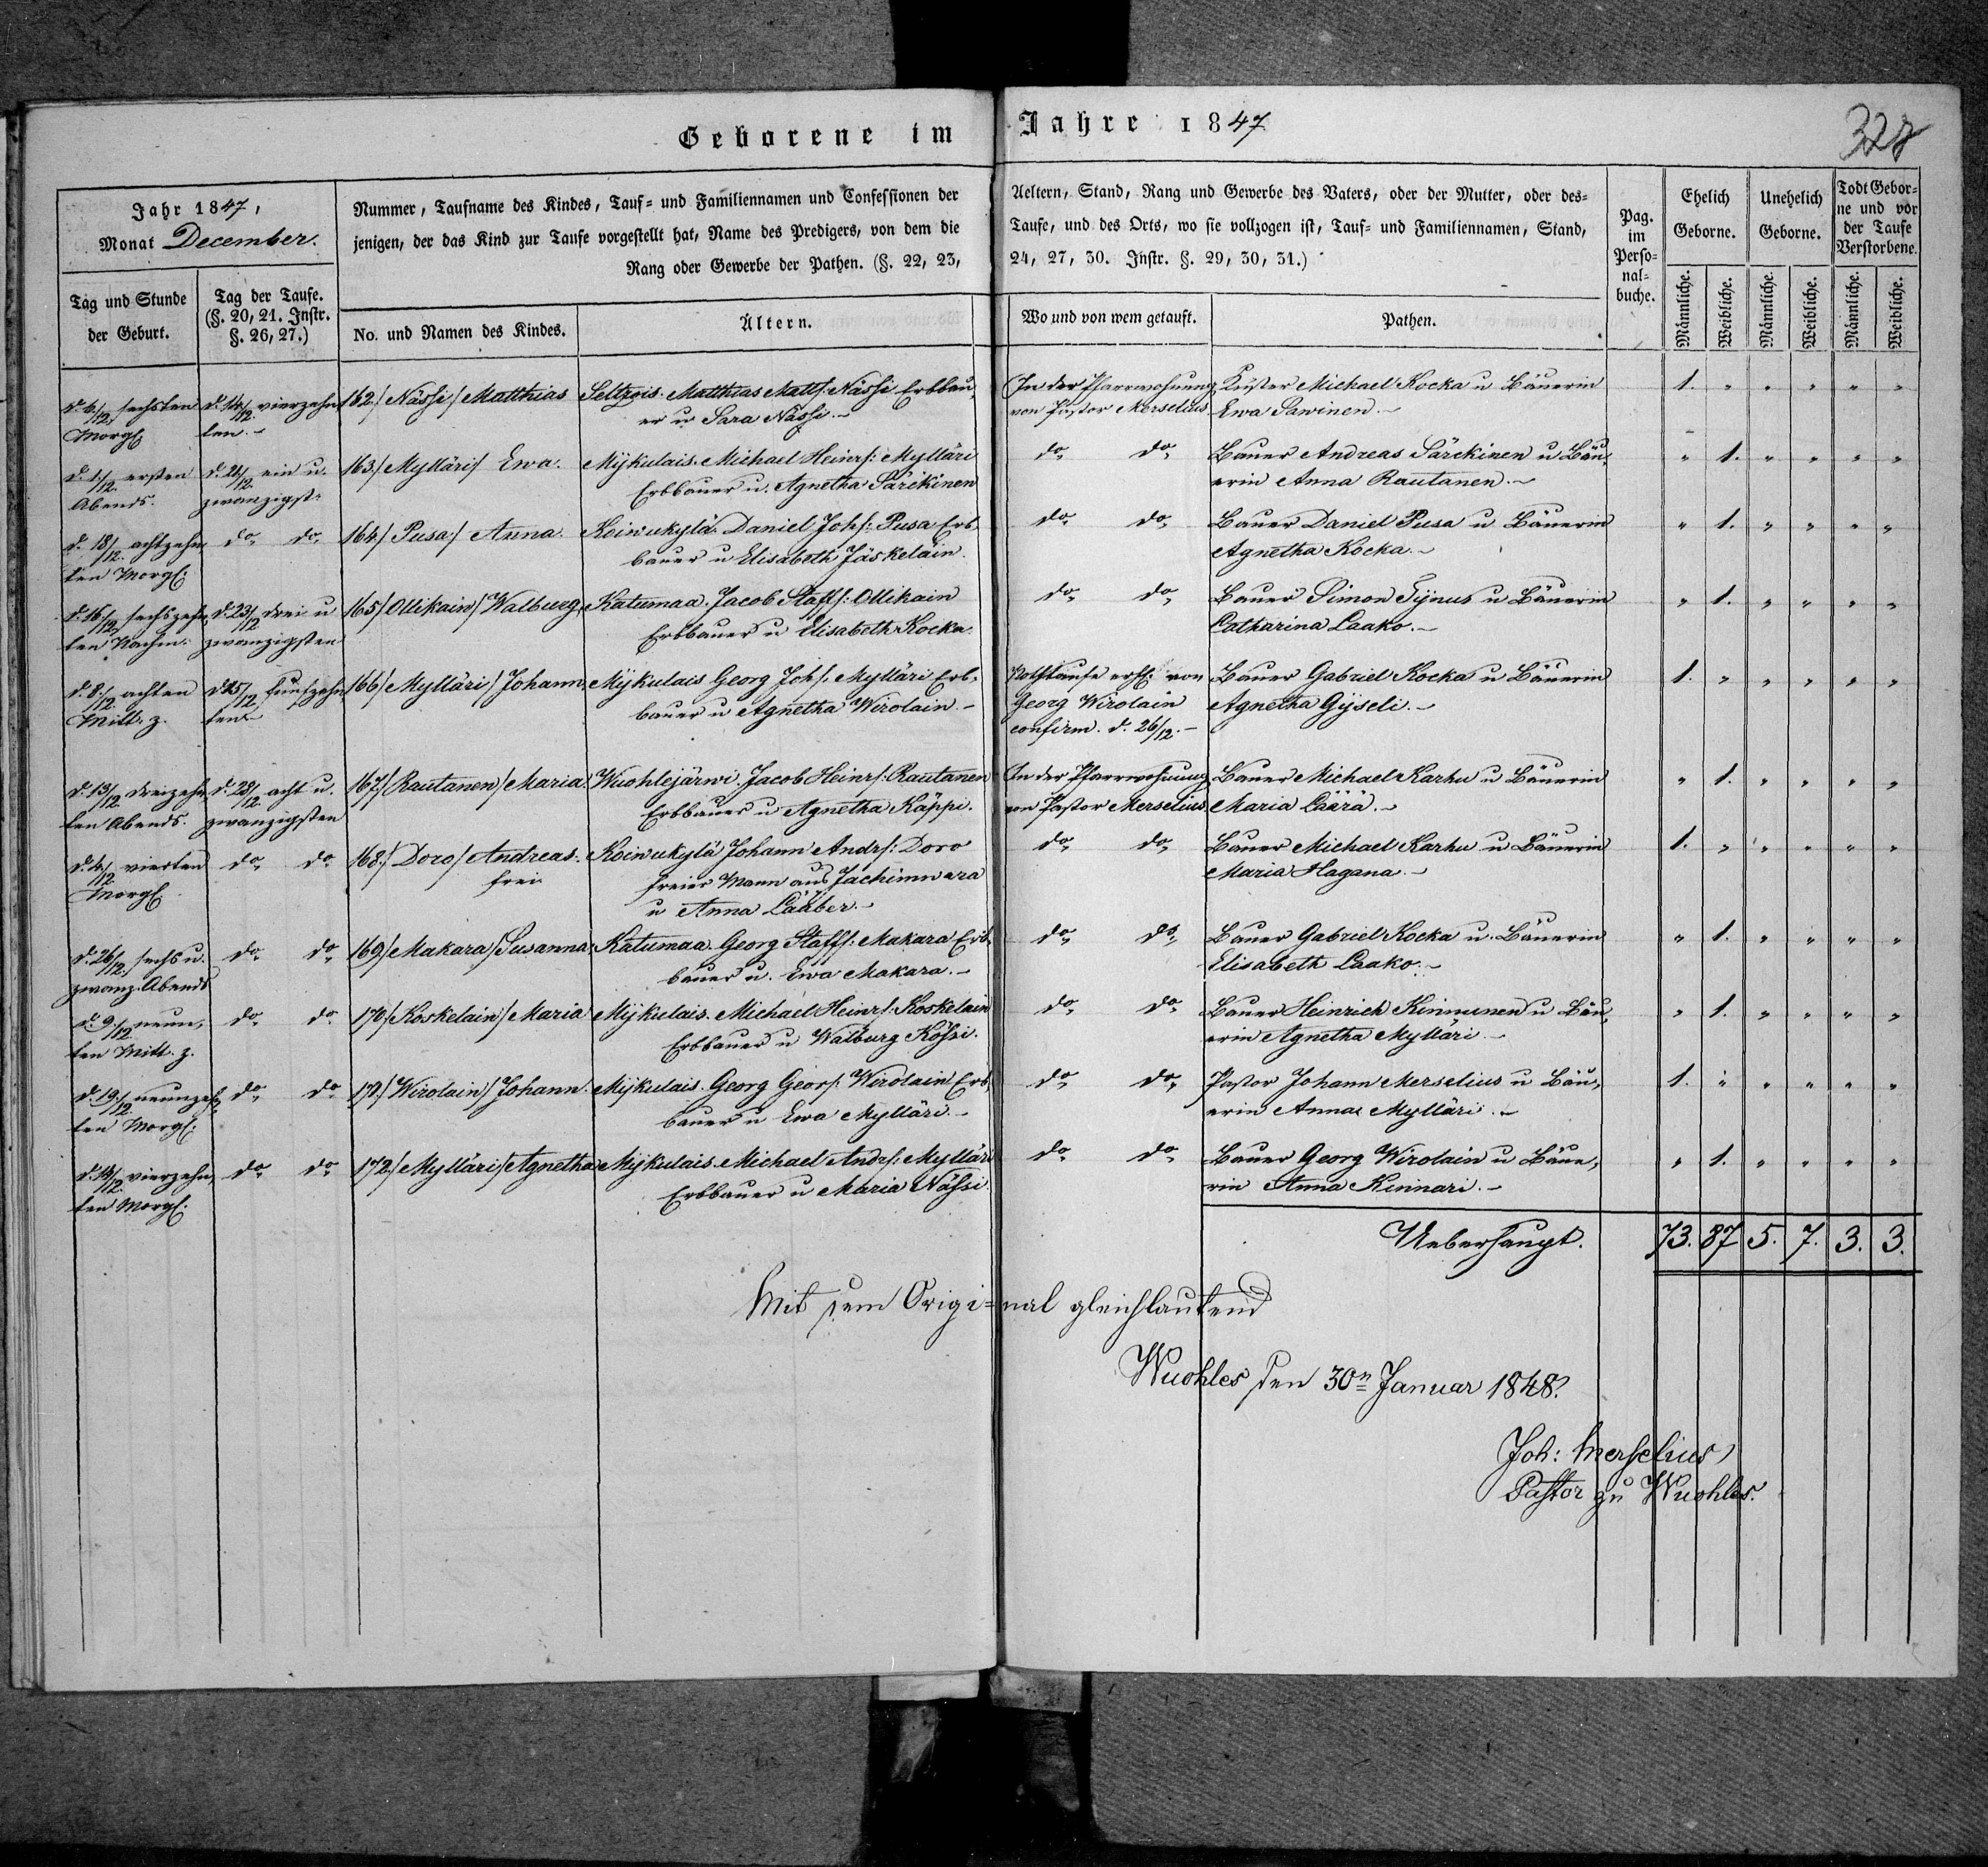 Geborene im Jahre 1847
328
Jahr 1847,
Monat December.
Nummer, Taufname des Kindes, Tauf- und Familiennamen und Confessionen der Aeltern, Stand, Rang und Gewerbe des Vaters, oder der Mutter, oder des-
jenigen, der das Kind zur Taufe vorgestellt hat, Name des Predigers, von dem die Taufe, und des Orts, wo sie vollzogen ist, Tauf- und Familiennamen, Stand,
Rang oder Gewerbe der Pathen. (§. 22, 23, 24, 27, 30. Instr. §. 29, 30, 31.)
Pag. im Perso-nal-buche.
Ehelich Geborne.
Unehelich Geborne.
Todt Gebor-ne und vor der Taufe Verstorbene.
Tag und Stunde der Geburt.
Tag der Taufe. (§. 20, 21. Instr. §. 26, 27.)
No. und Namen des Kindes.
Ältern.
Wo und von wem getauft.
Pathen.
Männliche. Weibliche. Männliche. Weibliche. Männliche. Weibliche.
d. 6/12. sechsten d. 14/12. vierzehn, 162./ Nässi / Matthias Seltzois. Matthias Matts: Nässi Erbbau, In der Pfarrwohnung Küster Michael Kocka u Bäuerin 1. " " " " "
Morgs ten. - er u Sara Nässi. - von Pastor Merselius. Ewa Sawinen. -
d. 1/12. ersten d. 21/12. ein u. 163./ Mylläri / Ewa. Mykulais. Michael Heinrs: Mylläri do do Bauer Andreas Särckinen u Bäu, " 1. " " " "
Abends. zwanzigst: Erbbauer u. Agnetha Särckinen erin Anna Rautanen. -
d. 18/12. achtzehn, do do 164./ Pusa / Anna. Koiwukylä. Daniel Johs: Pusa Erb, do do Bauer Daniel Pusa u Bäuerin " 1. " " " "
ten Morgs: bauer u Elisabeth Jäskeläin. Agnetha Kocka. -
d. 16/12. sechszehn, d. 23/12. drei u 165/ Ollikain / Walburg, Katumaa. Jacob Staffs: Ollikain do do Bauer Simon Tynus u Bäuerin " 1. " " " "
ten Nachm: zwanzigsten Erbbauer u Elisabeth Kocka. Catharina Laako. -
d. 8/12. achten d. 15/12. funfzehn, 166/ Mylläri / Johann, Mykulais Georg Johs. Mylläri Erb, Nothtaufe erhl: von Bauer Gabriel Kocka u Bäuerin 1. " " " " "
Mitt. z. ten bauer u Agnetha Wirolain. - Georg Wirolain Agnetha Gyseli. -
confirm. d. 26/12. -
d. 13/12. dreizehn, d. 28/12. acht u. 167/ Rautanen / Maria. Wuohlejärwi. Jacob Heinrs: Rautanen In der Pfarrwohnung Bauer Michael Karhu u Bäuerin " 1. " " " "
ten Abends. zwanzigsten Erbbauer u Agnetha Käppi. von Pastor Merselius. Maria Läärä. -
d. 4/12. vierten do do 168./ Doro / Andreas. Koiwukylä Johann Andrs: Doro do do Bauer Michael Karhu u Bäuerin 1. " " " " "
Morgs frei freier Mann aus Jachimwara Maria Hagana. -
u Anna Lääber. -
d. 26/12. sechs u. do do 169./ Makara / Susanna, Katumaa. Georg Staffs: Makara Erb, do do Bauer Gabriel Kocka u. Bäuerin " 1. " " " "
zwanz. Abends bauer u. Ewa Makara. - Elisabeth Laako. -
d. 9/12. neun, do do 170./ Koskelain / Maria Mykulais. Michael Heinrs: Koskelain do do Bauer Heinrich Kinnunen u Bäu, " 1. " " " "
ten Mitt. z. Erbbauer u Walburg Kössi. erin Agnetha Mylläri. -
d. 19/12. neunzeh, do do 171./ Wirolain / Johann. Mykulais. Georg Geors: Wirolain Erb, do do Pastor Johann Merselius u Bäu, 1. " " " " "
ten Morgs: bauer u Ewa Mylläri. - erin Anna Mylläri. -
d. 14/12. vierzehn, do do 172./ Mylläri / Agnetha Mykulais. Michael Andrs: Mylläri do do Bauer Georg Wirolain u Bäue, " 1. " " " "
ten Morgs: Erbbauer u Maria Nässi. rin Anna Kinnari. -
Ueberhaupt. 73. 87 5. 7. 3. 3.
Mit dem Origi=nal gleichlautend
Wuohles den 30n Januar 1848.
Joh: Merselius
Pastor zu Wuohles.